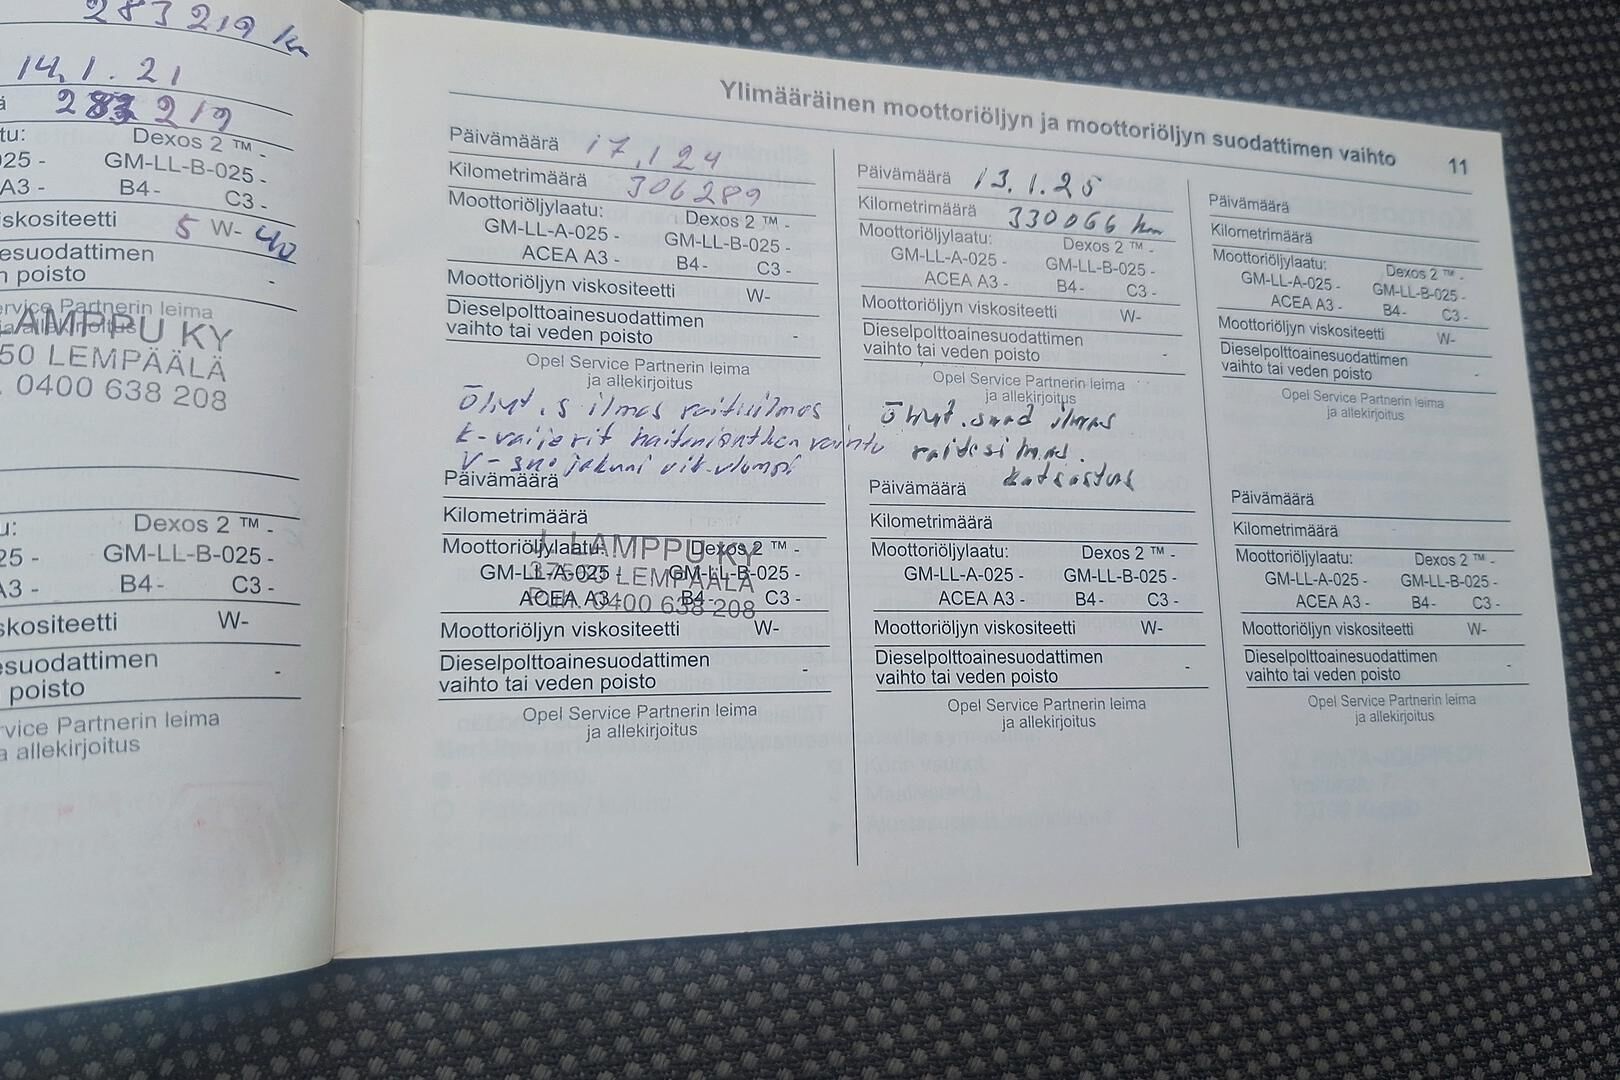 283 219 km
14.1.21
283 219
tu: Dexos 2 ™ -
025 - GM-LL-B-025 -
A3 - B4- C3 -
skositeetti 5 W- 40
esuodattimen
n poisto -
ervice Partnerin leima
ja allekirjoitus
AMPPU KY
50 LEMPÄÄLÄ
. 0400 638 208
u: Dexos 2 ™ -
25 - GM-LL-B-025 -
A3 - B4- C3 -
skositeetti W-
esuodattimen
poisto -
rvice Partnerin leima
a allekirjoitus
Ylimääräinen moottoriöljyn ja moottoriöljyn suodattimen vaihto 11
Päivämäärä 17.1 24
Kilometrimäärä 306289
Moottoriöljylaatu: Dexos 2 ™ -
GM-LL-A-025 - GM-LL-B-025 -
ACEA A3 - B4- C3 -
Moottoriöljyn viskositeetti W-
Dieselpolttoainesuodattimen
vaihto tai veden poisto -
Opel Service Partnerin leima
ja allekirjoitus
Öljyt. s ilmas raitisilmas
k-vaijerit
Päivämäärä
Kilometrimäärä
Moottoriöljylaatu: Dexos 2 ™ -
GM-LL-A-025 - GM-LL-B-025 -
ACEA A3 - B4- C3 -
J. LAMPPU KY
37500 LEMPÄÄLÄ
Puh. 0400 638 208
Moottoriöljyn viskositeetti W-
Dieselpolttoainesuodattimen
vaihto tai veden poisto
Opel Service Partnerin leima
ja allekirjoitus
Päivämäärä 13.1.25
Kilometrimäärä 330066 km
Moottoriöljylaatu: Dexos 2 ™ -
GM-LL-A-025 - GM-LL-B-025 -
ACEA A3 - B4- C3 -
Moottoriöljyn viskositeetti W-
Dieselpolttoainesuodattimen
vaihto tai veden poisto -
Opel Service Partnerin leima
ja allekirjoitus
Öljyt. suod ilmas
raitisilmas.
katsastus
Päivämäärä
Kilometrimäärä
Moottoriöljylaatu: Dexos 2 ™ -
GM-LL-A-025 - GM-LL-B-025 -
ACEA A3 - B4- C3 -
Moottoriöljyn viskositeetti W-
Dieselpolttoainesuodattimen
vaihto tai veden poisto -
Opel Service Partnerin leima
ja allekirjoitus
Päivämäärä
Kilometrimäärä
Moottoriöljylaatu: Dexos 2 ™ -
GM-LL-A-025 - GM-LL-B-025 -
ACEA A3 - B4- C3 -
Moottoriöljyn viskositeetti W-
Dieselpolttoainesuodattimen
vaihto tai veden poisto -
Opel Service Partnerin leima
ja allekirjoitus
Päivämäärä
Kilometrimäärä
Moottoriöljylaatu: Dexos 2 ™ -
GM-LL-A-025 - GM-LL-B-025 -
ACEA A3 - B4- C3 -
Moottoriöljyn viskositeetti W-
Dieselpolttoainesuodattimen
vaihto tai veden poisto -
Opel Service Partnerin leima
ja allekirjoitus